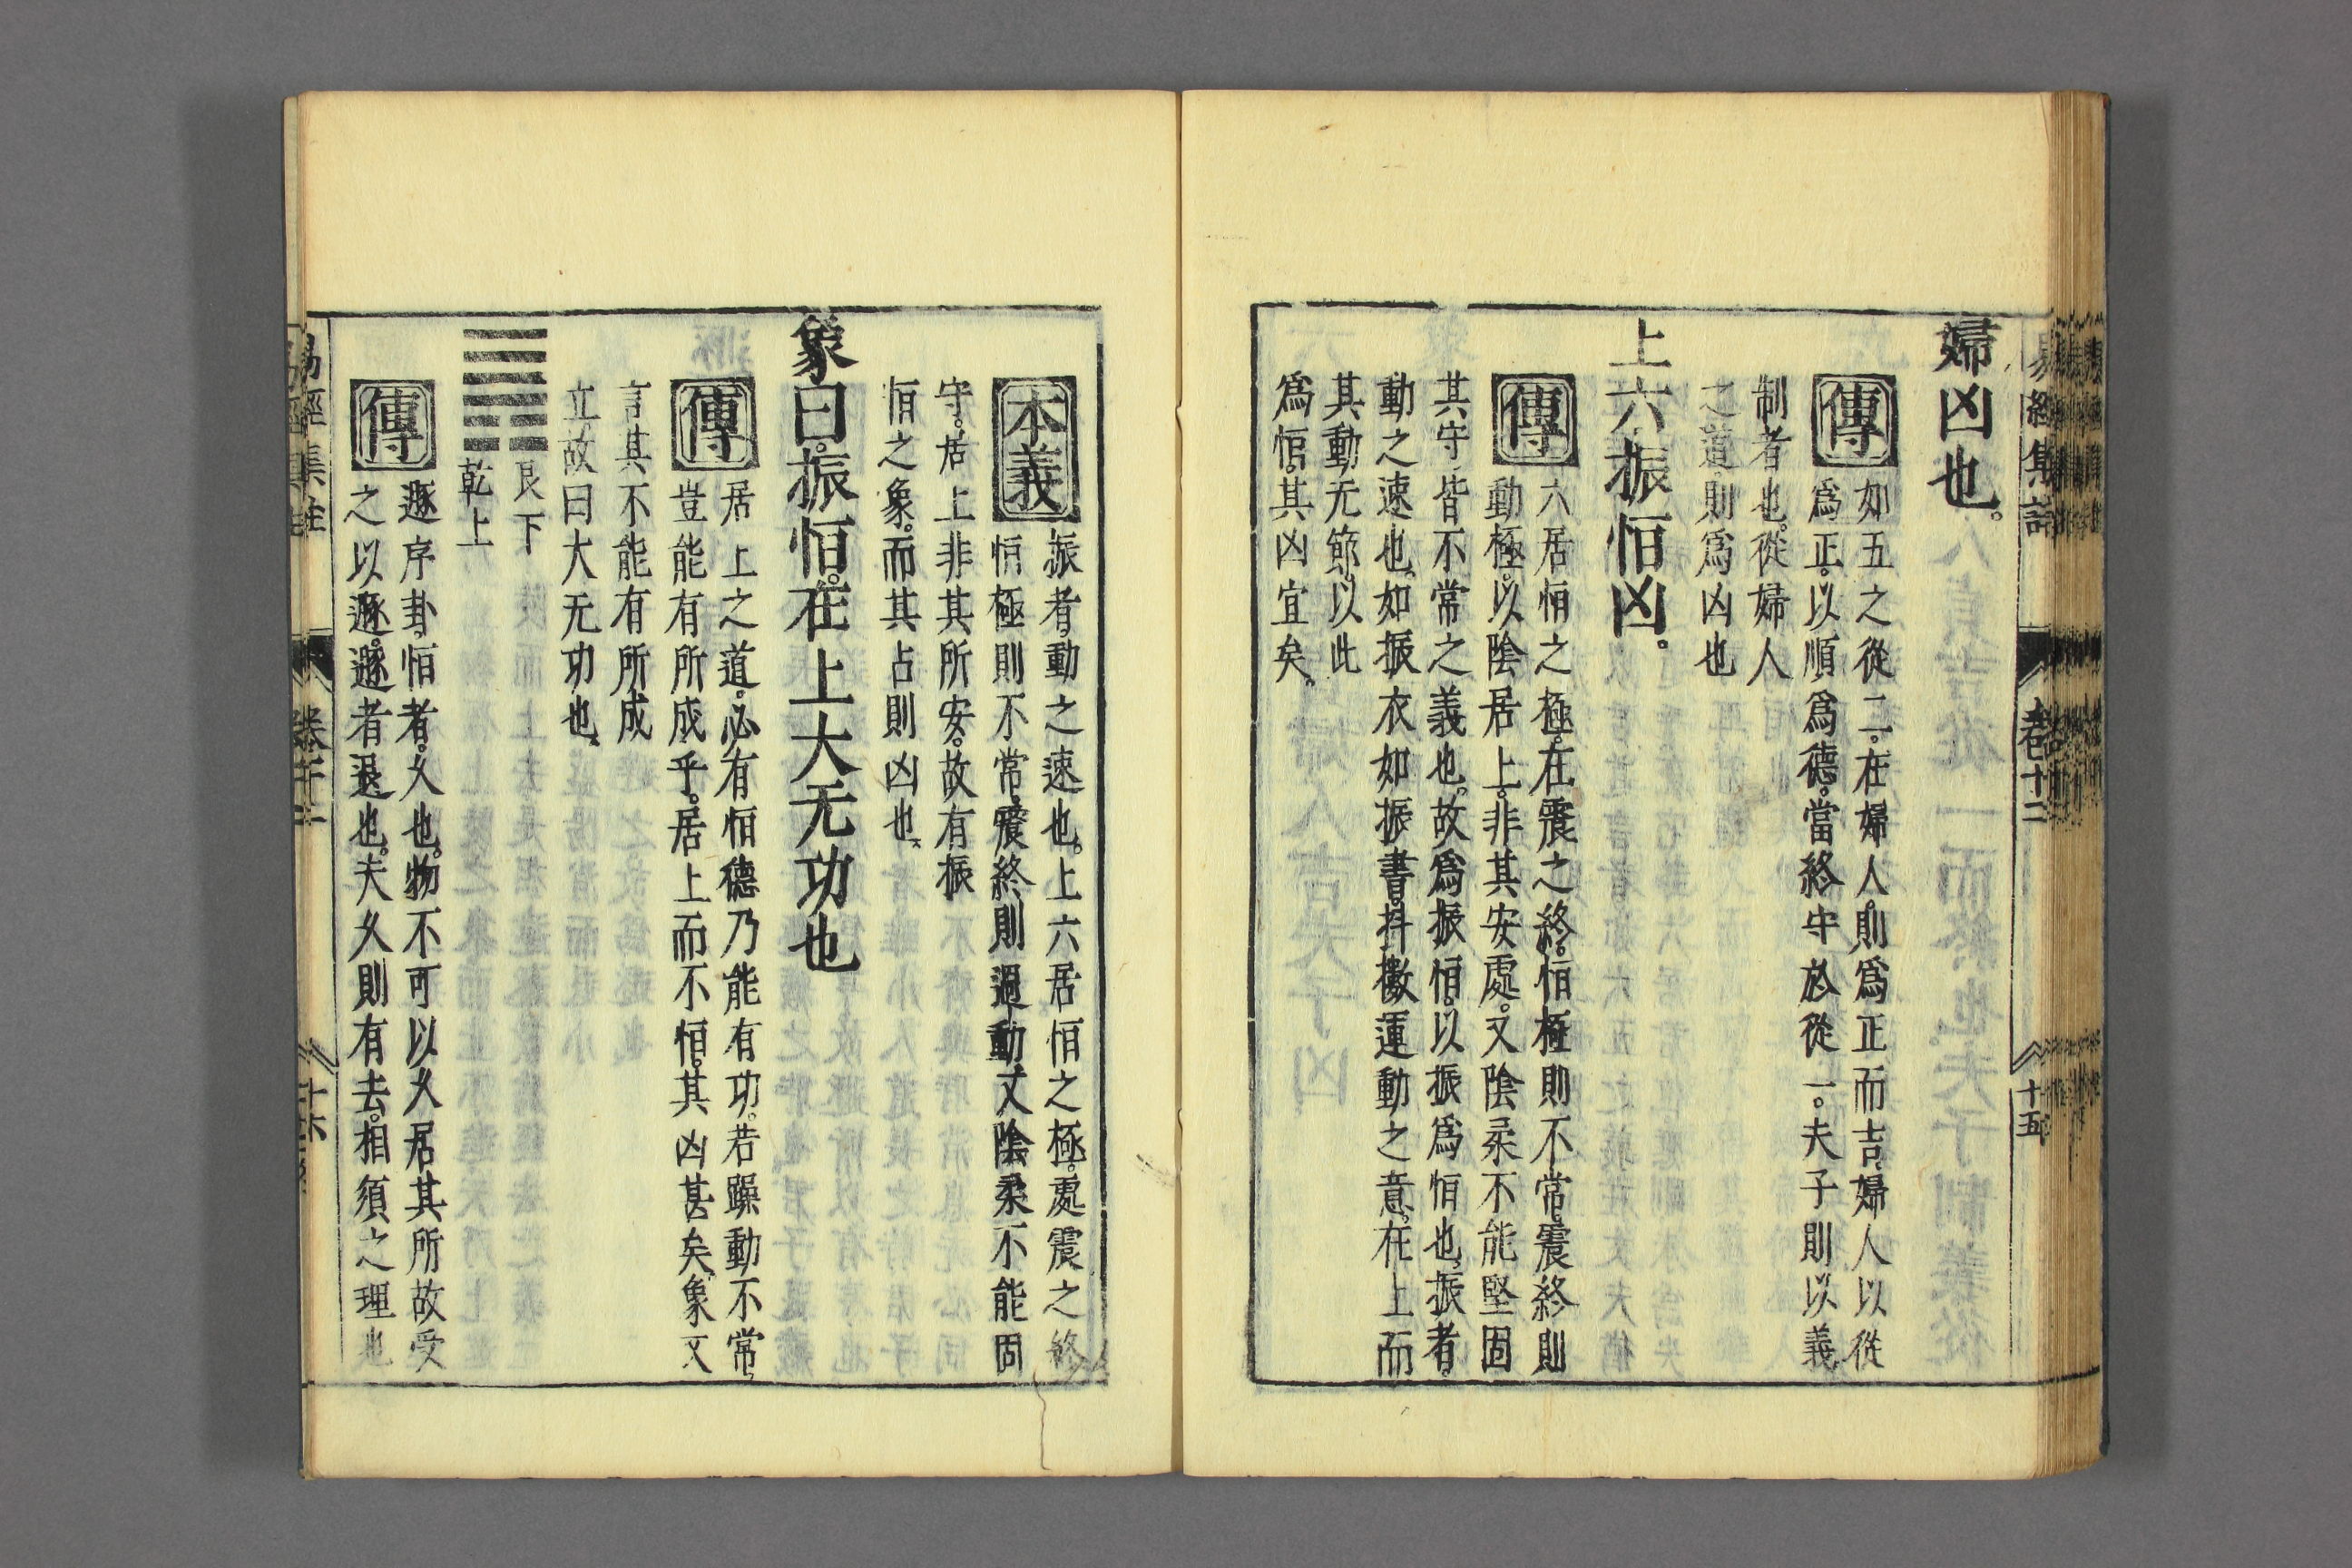 易經集註 卷十二 十五
婦凶也。
傳
如五之從二。在婦人。則爲正而吉。婦人以從
爲正。以順爲德。當終守於從一。夫子則以義
制者也。從婦人
之道。則爲凶也
上六振恒凶。
傳
六居恒之極。在震之終。恒極則不常。震終則
動極。以陰居上。非其安處。又陰柔不能堅固
其守。皆不常之義也。故爲振恒。以振爲恒也。振者。
動之速也。如振衣如振書。抖擻運動之意。在上而
其動无節。以此
爲恒。其凶宜矣。
本義
振者。動之速也。上六居恒之極。處震之終
恒極則不常。震終則過動。又陰柔不能固
守。居上非其所安。故有振
恒之象。而其占則凶也。
象曰。振恒。在上大无功也
傳
居上之道。必有恒德乃能有功。若躁動不常。
豈能有所成乎。居上而不恒。其凶甚矣。象又
言其不能有所成
立故曰大无功也。
艮下
乾上
傳
遯序卦。恒者。久也。物不可以久居其所故受
之以遯。遯者退也。夫久則有去。相須之理也
易經集註 卷十二 十六